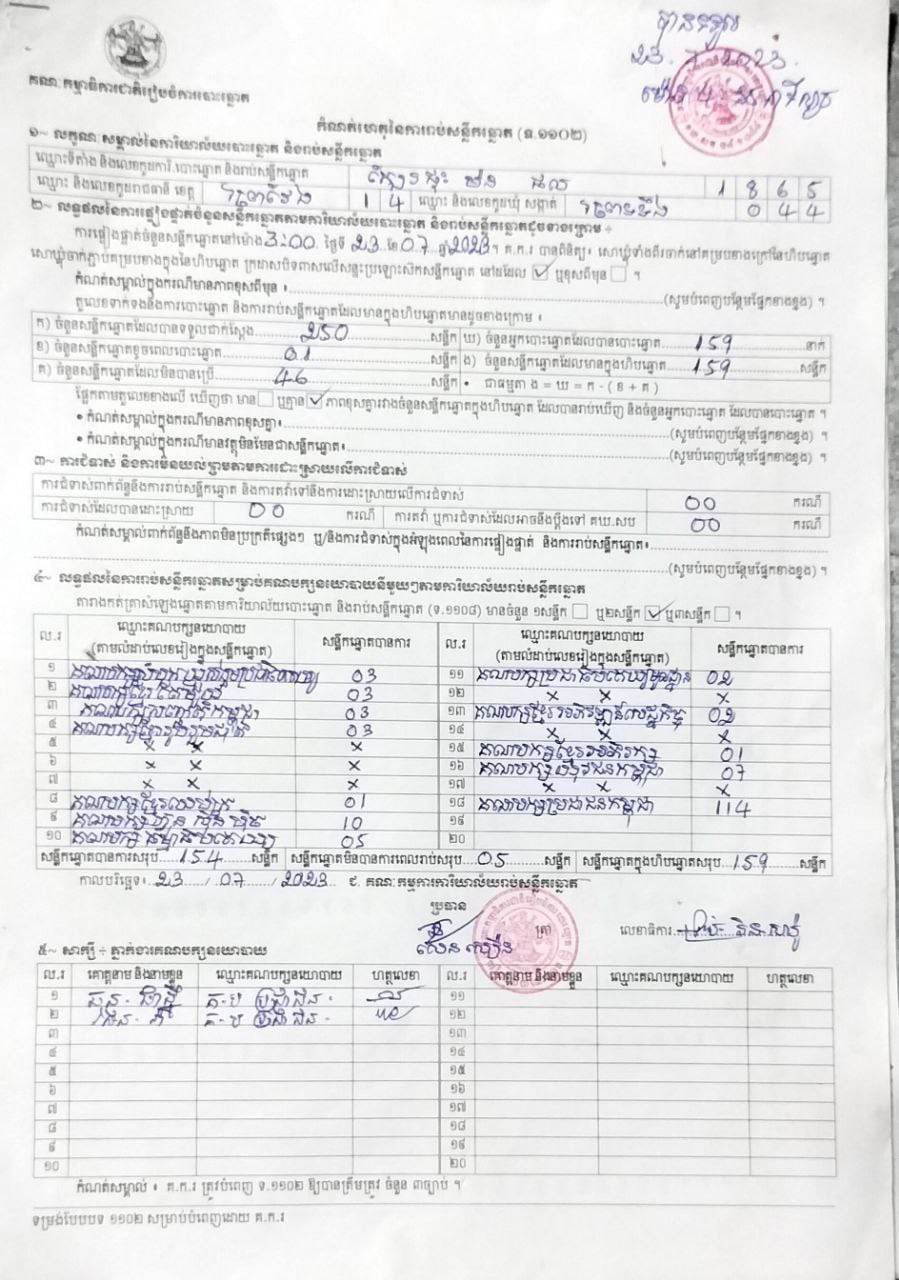 បានទទួល
គណៈកម្មាធិការជាតិរៀបចំការបោះឆ្នោត
កំណត់ហេតុនៃការរាប់សន្លឹកឆ្នោត (ទ.១១០២)
១~ លក្ខណៈសម្គាល់នៃការិយាល័យបោះឆ្នោត និងរាប់សន្លឹកឆ្នោត
ឈ្មោះទីតាំង និងលេខកូដការិ.បោះឆ្នោត និងរាប់សន្លឹកឆ្នោត 1 8 6 5
ឈ្មោះ និងលេខកូដរាជធានី ខេត្ត ព្រៃវែង 1 4 ឈ្មោះ និងលេខកូដឃុំ សង្កាត់ 0 4 4
២~ លទ្ធផលនៃការផ្ទៀងផ្ទាត់ចំនួនសន្លឹកឆ្នោតតាមការិយាល័យបោះឆ្នោត និងរាប់សន្លឹកឆ្នោតដូចខាងក្រោម ÷
ការផ្ទៀងផ្ទាត់ចំនួនសន្លឹកឆ្នោតនៅម៉ោង 3:00 ថ្ងៃទី 23 ខែ 07 ឆ្នាំ 2023។ គ.ក.រ បានពិនិត្យ៖ សោឃ្មុំទាំងពីរចាក់នៅគម្របខាងក្រៅនៃហិបឆ្នោត
សោឃ្មុំចាក់ភ្ជាប់គម្របខាងក្នុងនៃហិបឆ្នោត ក្រដាសបិទពាសលើសន្ទះប្រឡោះសិកសន្លឹកឆ្នោត នៅដដែល ☑ ឬខុសពីមុន ☐ ។
កំណត់សម្គាល់ក្នុងករណីមានភាពខុសពីមុន ៖ (សូមបំពេញបន្ថែមផ្នែកខាងខ្នង) ។
តួលេខទាក់ទងនឹងការបោះឆ្នោត និងការរាប់សន្លឹកឆ្នោតដែលមានក្នុងហិបឆ្នោតមានដូចខាងក្រោម ៖
ក) ចំនួនសន្លឹកឆ្នោតដែលបានទទួលជាក់ស្តែង 250 សន្លឹក ឃ) ចំនួនអ្នកបោះឆ្នោតដែលបានបោះឆ្នោត 159 នាក់
ខ) ចំនួនសន្លឹកឆ្នោតខូចពេលបោះឆ្នោត 01 សន្លឹក ង) ចំនួនសន្លឹកឆ្នោតដែលមានក្នុងហិបឆ្នោត 159 សន្លឹក
គ) ចំនួនសន្លឹកឆ្នោតដែលមិនបានប្រើ 46 សន្លឹក • ជាធម្មតា ង = ឃ = ក - ( ខ + គ )
ផ្អែកតាមតួលេខខាងលើ ឃើញថា មាន ☐ ឬគ្មាន ☑ ភាពខុសគ្នារវាងចំនួនសន្លឹកឆ្នោតក្នុងហិបឆ្នោត ដែលបានរាប់ឃើញ និងចំនួនអ្នកបោះឆ្នោត ដែលបានបោះឆ្នោត ។
• កំណត់សម្គាល់ក្នុងករណីមានភាពខុសគ្នា៖ (សូមបំពេញបន្ថែមផ្នែកខាងខ្នង) ។
• កំណត់សម្គាល់ក្នុងករណីមានវត្ថុមិនមែនជាសន្លឹកឆ្នោត៖ (សូមបំពេញបន្ថែមផ្នែកខាងខ្នង) ។
៣~ ការជំទាស់ និងការមិនយល់ព្រមតាមការដោះស្រាយលើការជំទាស់
ការជំទាស់ពាក់ព័ន្ធនឹងការរាប់សន្លឹកឆ្នោត និងការតវ៉ាទៅនឹងការដោះស្រាយលើការជំទាស់ 00 ករណី
ការជំទាស់ដែលបានដោះស្រាយ 00 ករណី ការតវ៉ា ឬការជំទាស់ដែលអាចនឹងប្តឹងទៅ គឃ.សប 00 ករណី
កំណត់សម្គាល់ពាក់ព័ន្ធនឹងភាពមិនប្រក្រតីផ្សេងៗ ឬ/និងការជំទាស់ក្នុងអំឡុងពេលនៃការផ្ទៀងផ្ទាត់ និងការរាប់សន្លឹកឆ្នោត៖
(សូមបំពេញបន្ថែមផ្នែកខាងខ្នង) ។
៤~ លទ្ធផលនៃការរាប់សន្លឹកឆ្នោតសម្រាប់គណបក្សនយោបាយនីមួយៗតាមការិយាល័យរាប់សន្លឹកឆ្នោត
តារាងកត់ត្រាសំឡេងឆ្នោតតាមការិយាល័យបោះឆ្នោត និងរាប់សន្លឹកឆ្នោត (ទ.១១០៨) មានចំនួន ១សន្លឹក ☐ ឬ២សន្លឹក ☑ ឬ៣សន្លឹក ☐ ។
ល.រ ឈ្មោះគណបក្សនយោបាយ (តាមលំដាប់លេខរៀងក្នុងសន្លឹកឆ្នោត) សន្លឹកឆ្នោតបានការ ល.រ ឈ្មោះគណបក្សនយោបាយ (តាមលំដាប់លេខរៀងក្នុងសន្លឹកឆ្នោត) សន្លឹកឆ្នោតបានការ
១ 03 ១១ 02
២ 03 ១២ x x x
៣ 03 ១៣ 02
៤ 03 ១៤ x x x
៥ x x x ១៥ 01
៦ x x x ១៦ 07
៧ x x x ១៧ x x x
៨ 01 ១៨ គណបក្សប្រជាជនកម្ពុជា 114
៩ 10 ១៩
១០ 05 ២០
សន្លឹកឆ្នោតបានការសរុប 154 សន្លឹក សន្លឹកឆ្នោតមិនបានការពេលរាប់សរុប 05 សន្លឹក សន្លឹកឆ្នោតក្នុងហិបឆ្នោតសរុប 159 សន្លឹក
កាលបរិច្ឆេទ៖ 23 / 07 / 2023 ៩. គណៈកម្មការការិយាល័យរាប់សន្លឹកឆ្នោត
ប្រធាន
ត្រា លេខាធិការ
៥~ សាក្សី ÷ ភ្នាក់ងារគណបក្សនយោបាយ
ល.រ គោត្តនាម និងនាមខ្លួន ឈ្មោះគណបក្សនយោបាយ ហត្ថលេខា ល.រ គោត្តនាម និងនាមខ្លួន ឈ្មោះគណបក្សនយោបាយ ហត្ថលេខា
១ គ.ប ប្រជាជន ១១
២ គ.ប ប្រជាជន ១២
៣ ១៣
៤ ១៤
៥ ១៥
៦ ១៦
៧ ១៧
៨ ១៨
៩ ១៩
១០ ២០
កំណត់សម្គាល់ ៖ គ.ក.រ ត្រូវបំពេញ ទ.១១០២ ឱ្យបានត្រឹមត្រូវ ចំនួន ៣ច្បាប់ ។
ទម្រង់បែបបទ ១១០២ សម្រាប់បំពេញដោយ គ.ក.រ